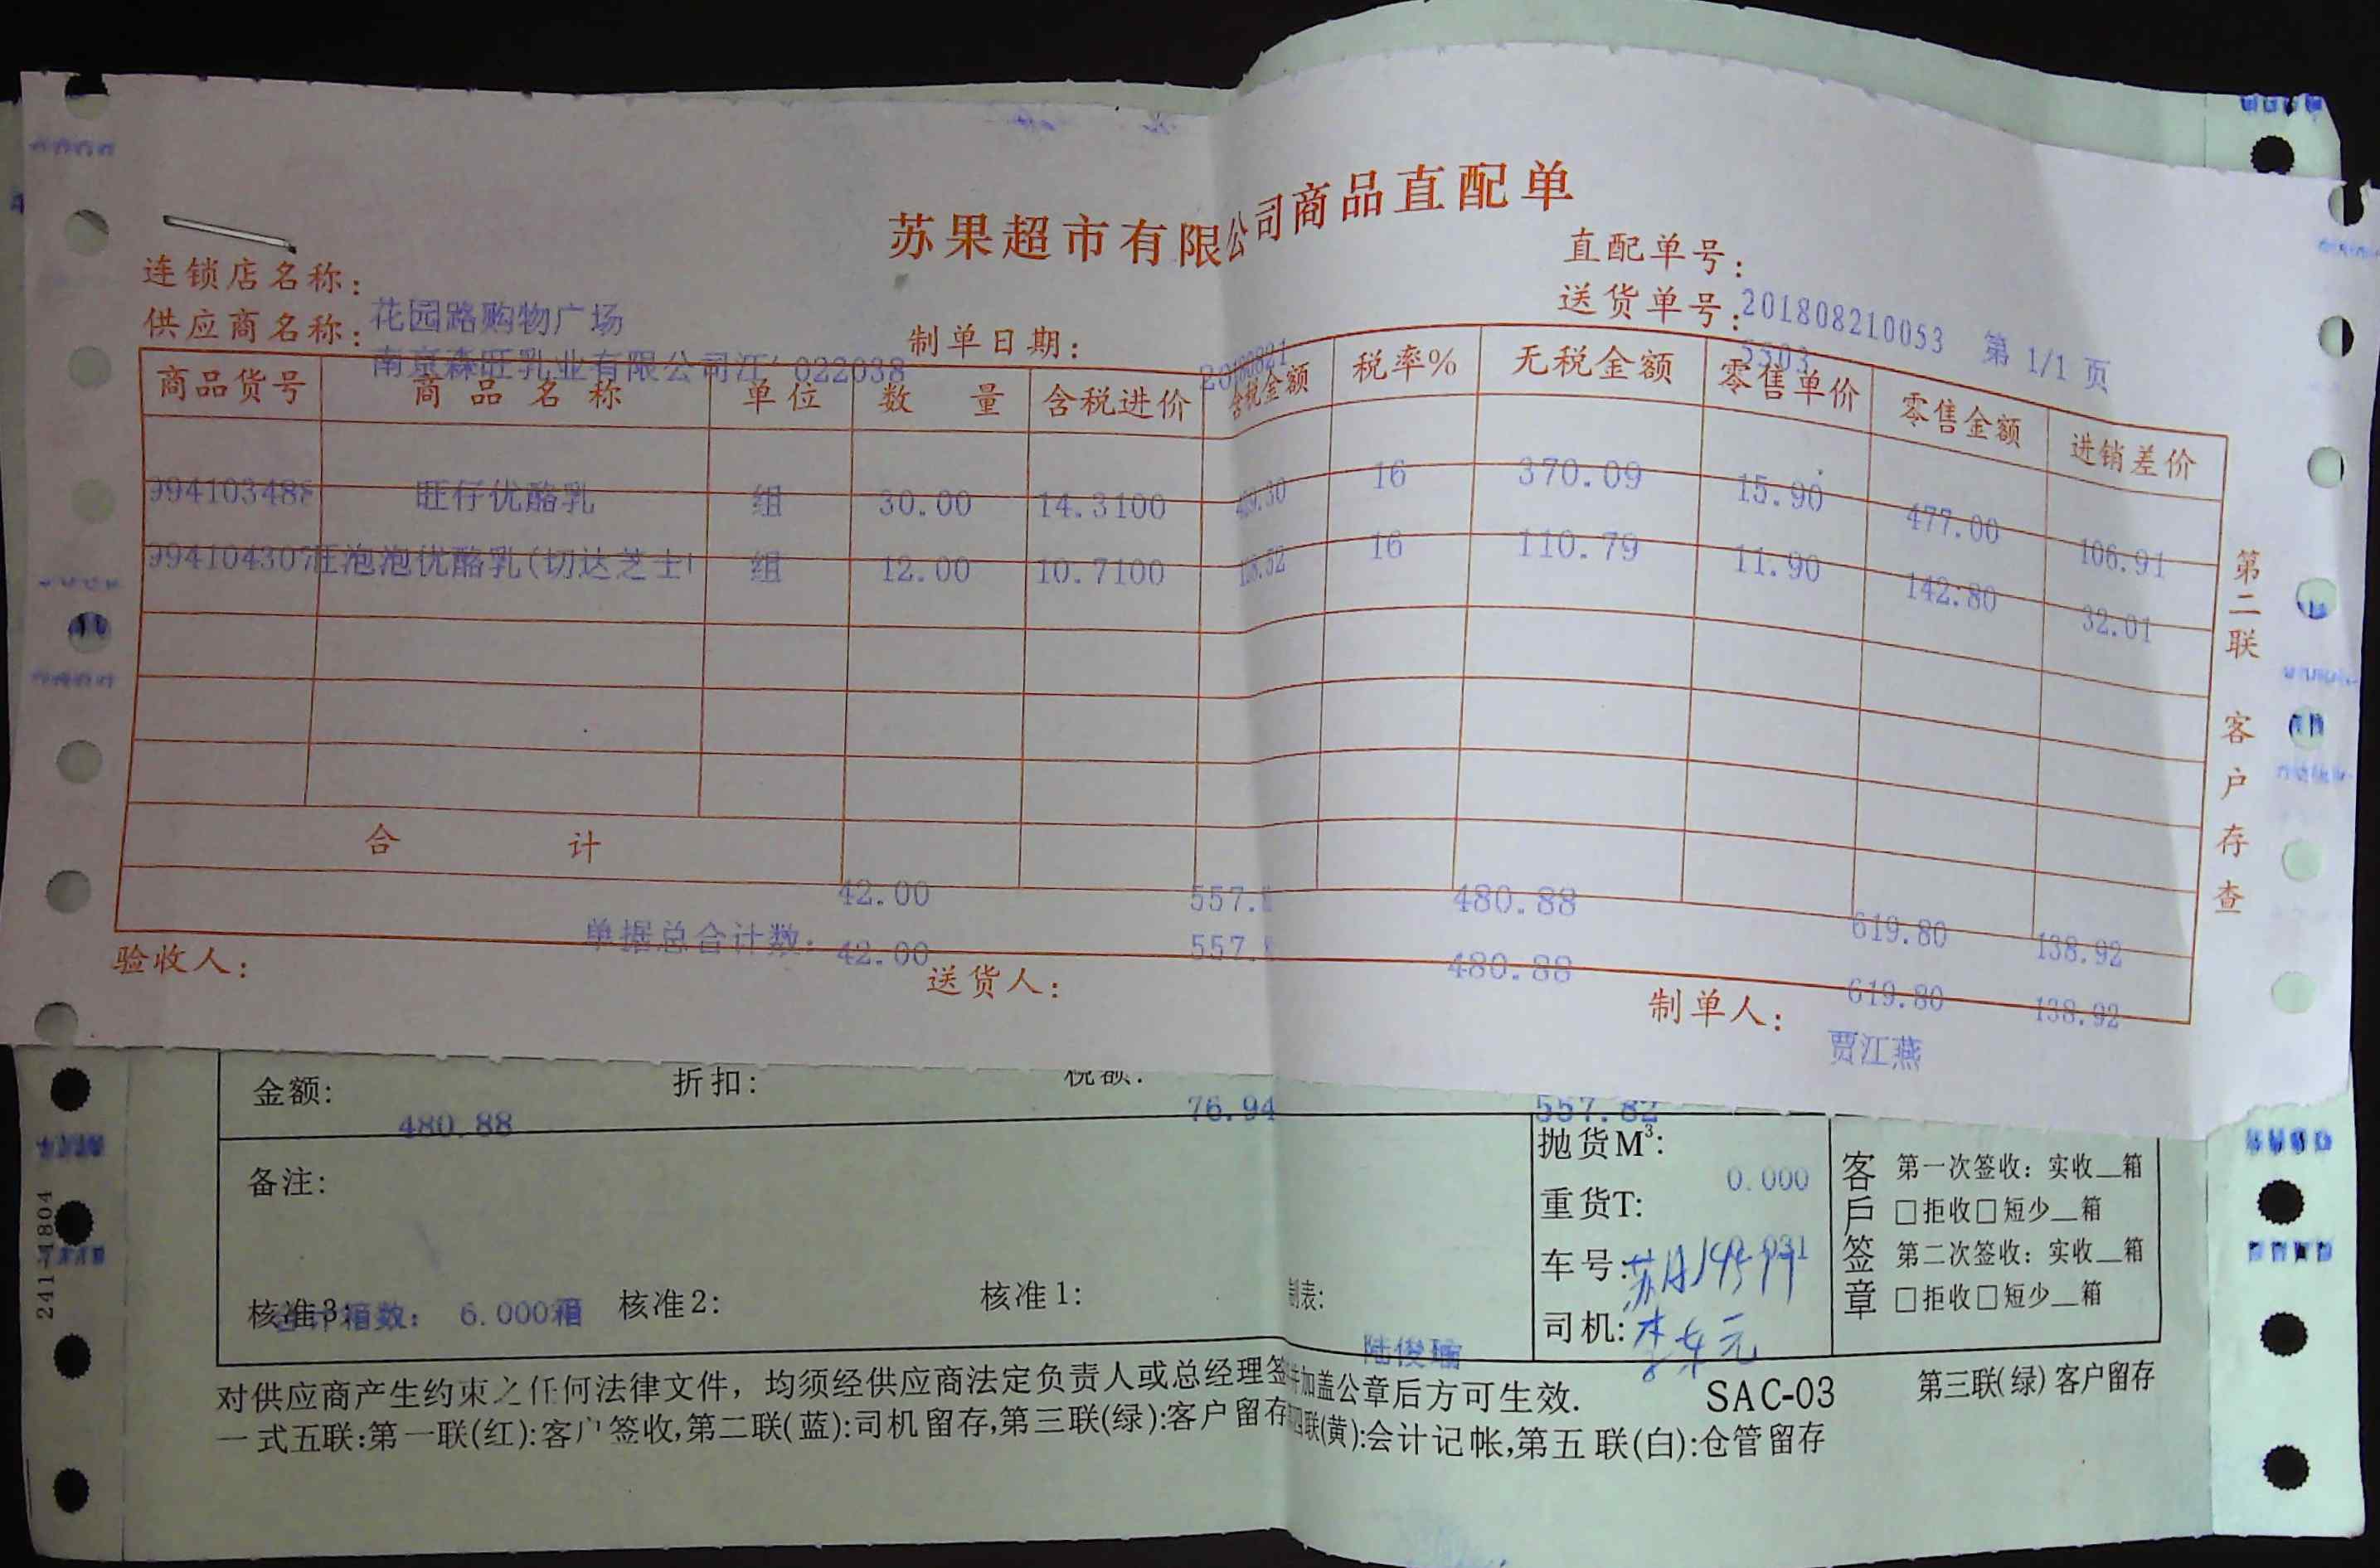 苏果超市有限公司商品直配单
连锁店名称: 花园路购物广场
直配单号: 201808210053 第 1/1 页
供应商名称: 南京森旺乳业有限公司江 022038
制单日期: 20180821
送货单号: 5503
商品货号 商品名称 单位 数量 含税进价 含税金额 税率% 无税金额 零售单价 零售金额 进销差价
994103488 旺仔优酪乳 组 30.00 14.3100 429.30 16 370.09 15.90 477.00 106.91
994104307 旺泡泡优酪乳(切达芝士 组 12.00 10.7100 128.52 16 110.79 11.90 142.80 32.01
合计 42.00 557. 480.88 619.80 138.92
单据总合计数: 42.00 557. 480.88 619.80 138.92
验收人: 送货人: 制单人: 贾江燕
第二联 客户存查
金额: 480.88 折扣: 税额: 76.94 557.82
备注:
抛货M³: 0.000
重货T:
车号:
司机:
客戶签章
第一次签收: 实收__箱
□拒收□短少__箱
第二次签收: 实收__箱
□拒收□短少__箱
核准3: 合计箱数: 6.000箱 核准2: 核准1: 制表: 陆俊瑜
对供应商产生约束之任何法律文件, 均须经供应商法定负责人或总经理签 并加盖公章后方可生效. SAC-03 第三联(绿) 客户留存
一式五联:第一联(红):客户签收,第二联(蓝):司机留存,第三联(绿):客户留存 第四联(黄):会计记帐,第五联(白):仓管留存